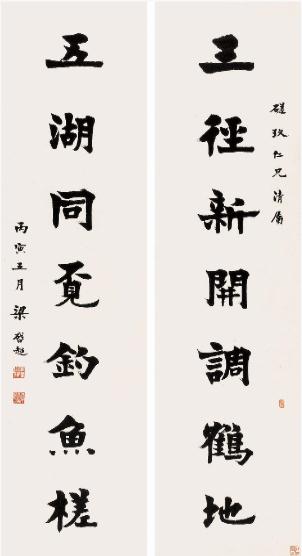 磋玖仁兄清屬
三徑新開調鶴地
五湖同覔釣魚槎
丙寅五月梁啓超